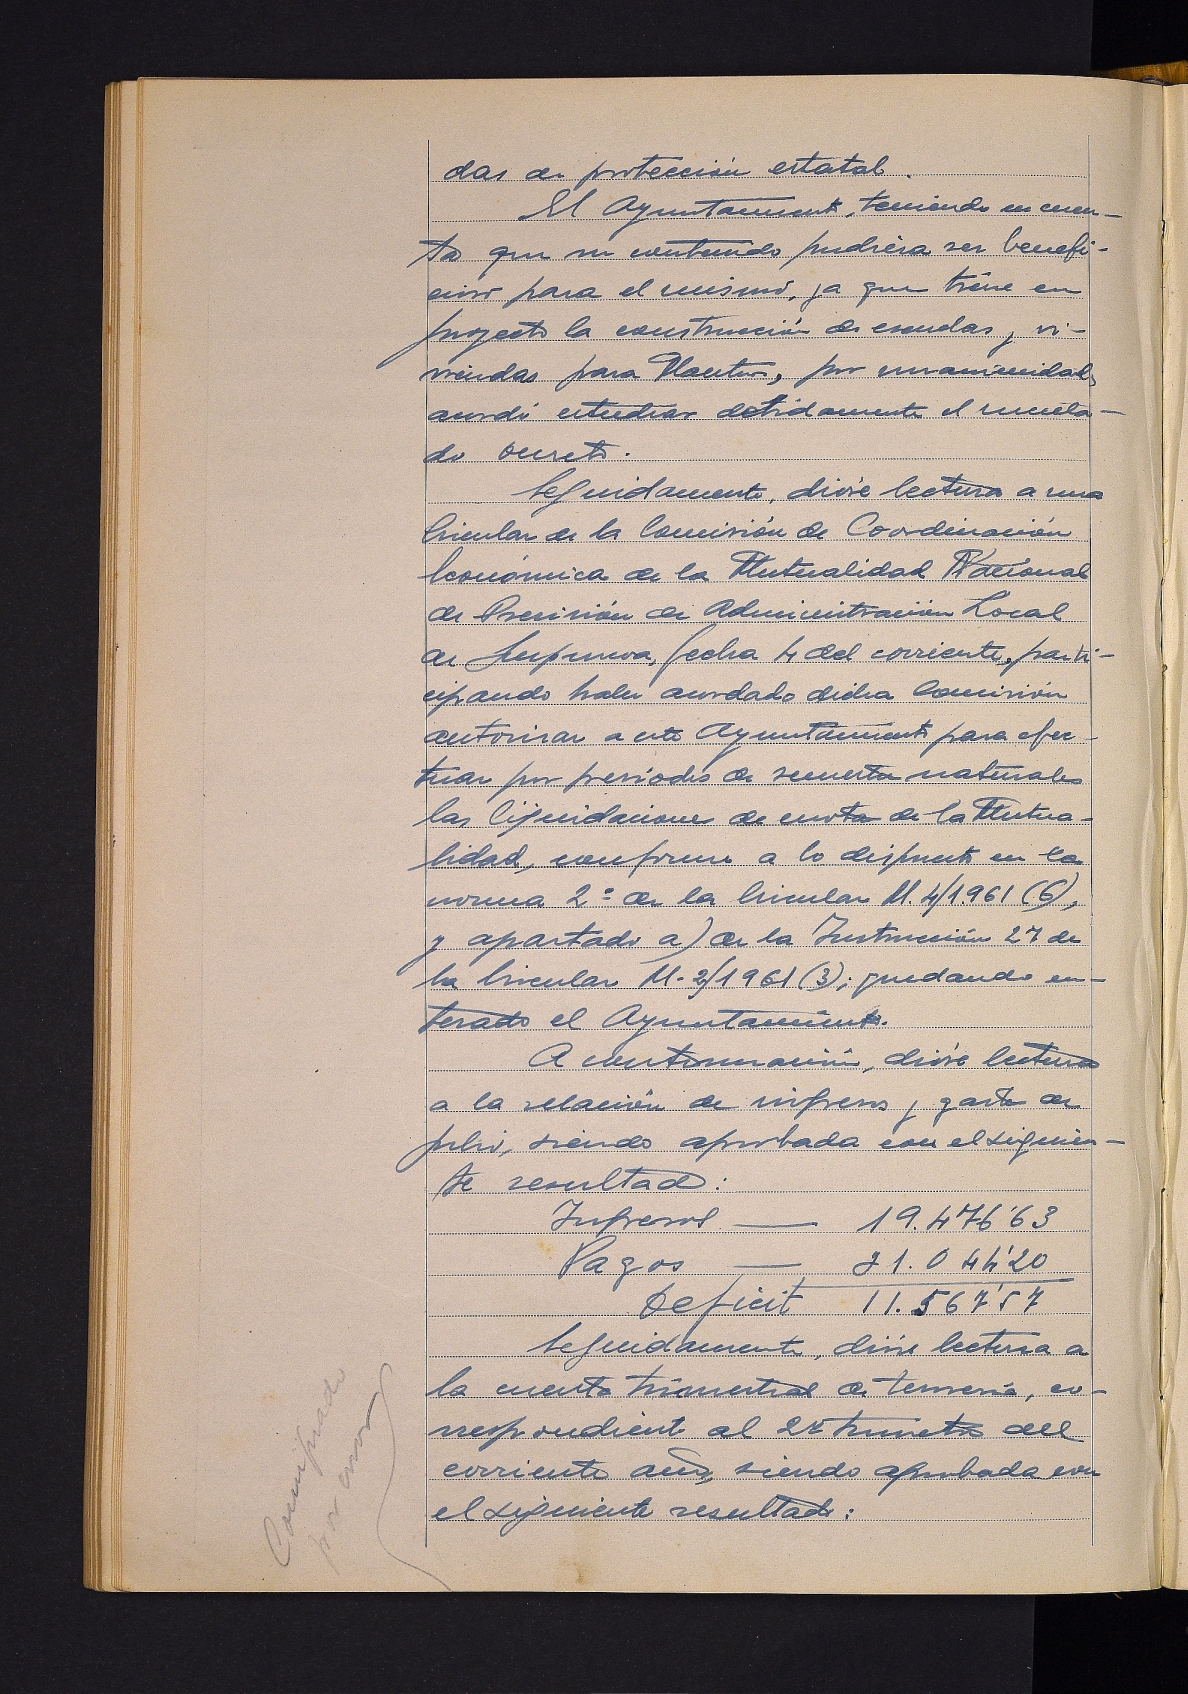 das de protección estatal.
El Ayuntamiento, teniendo en cuen-
ta que su contenido pudiera ser benefi-
cioso para el mismo, ya que tiene en
proyecto la construcción de escuelas y vi-
viendas para Maestros, por unanimidad,
acordó estudiar detenidamente el mencta-
do Decreto.
Seguidamente, dióse lectura a una
Circular de la Comisión de Coordinación
Económica de la Mutualidad Nacional
de Previsión de Administración Local
de fecha 4 del corriente, parti-
cipando haber acordado dicha Comisión
autorizar a este Ayuntamiento para efec-
tuar por periodos de semestres naturales
las liquidaciones de cuotas de la Mutua-
lidad, conforme a lo dispuesto en la
norma 2ª de la Circular M.4/1.961 (6),
y apartado a) de la Instrucción 27 de
la Circular M-2/1961 (3); quedando en-
terado el Ayuntamiento.
A continuación, dióse lectura
a la relación de ingresos y gastos de
julio, siendo aprobada con el siguien-
te resultado:
Ingresos — 19.476'63
Pagos — 31.044'20
Deficit 11.567'57
Seguidamente, dióse lectura a
la cuenta trimestral de tesorería, co-
rrespondiente al 2º trimestre del
corriente año, siendo aprobada con
el siguiente resultado:
por error